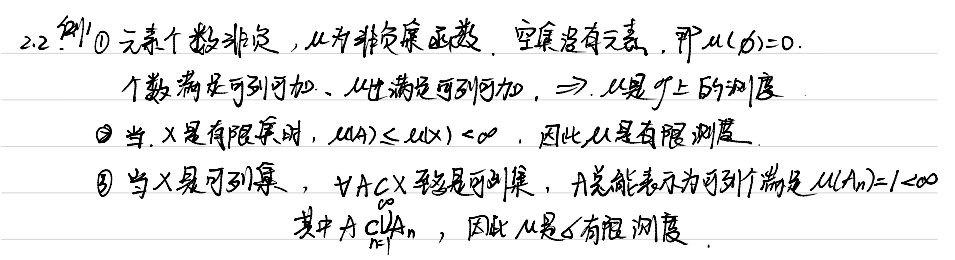 2.2 例1 ① 元素个数非负，μ为非负集函数．空集没有元素，即μ(∅)=0．
个数满足可列可加、μ也满足可列可加，⇒ μ是𝒯上的测度
② 当 X是有限集时，μ(A)≤μ(X)<∞，因此μ是有限测度．
③ 当X是可列集，∀A⊂X 至多是可列集，A总能表示为可列个满足μ(Aₙ)=1<∞
其中 A⊂⋃ₙ₌₁^∞Aₙ，因此μ是σ有限测度．